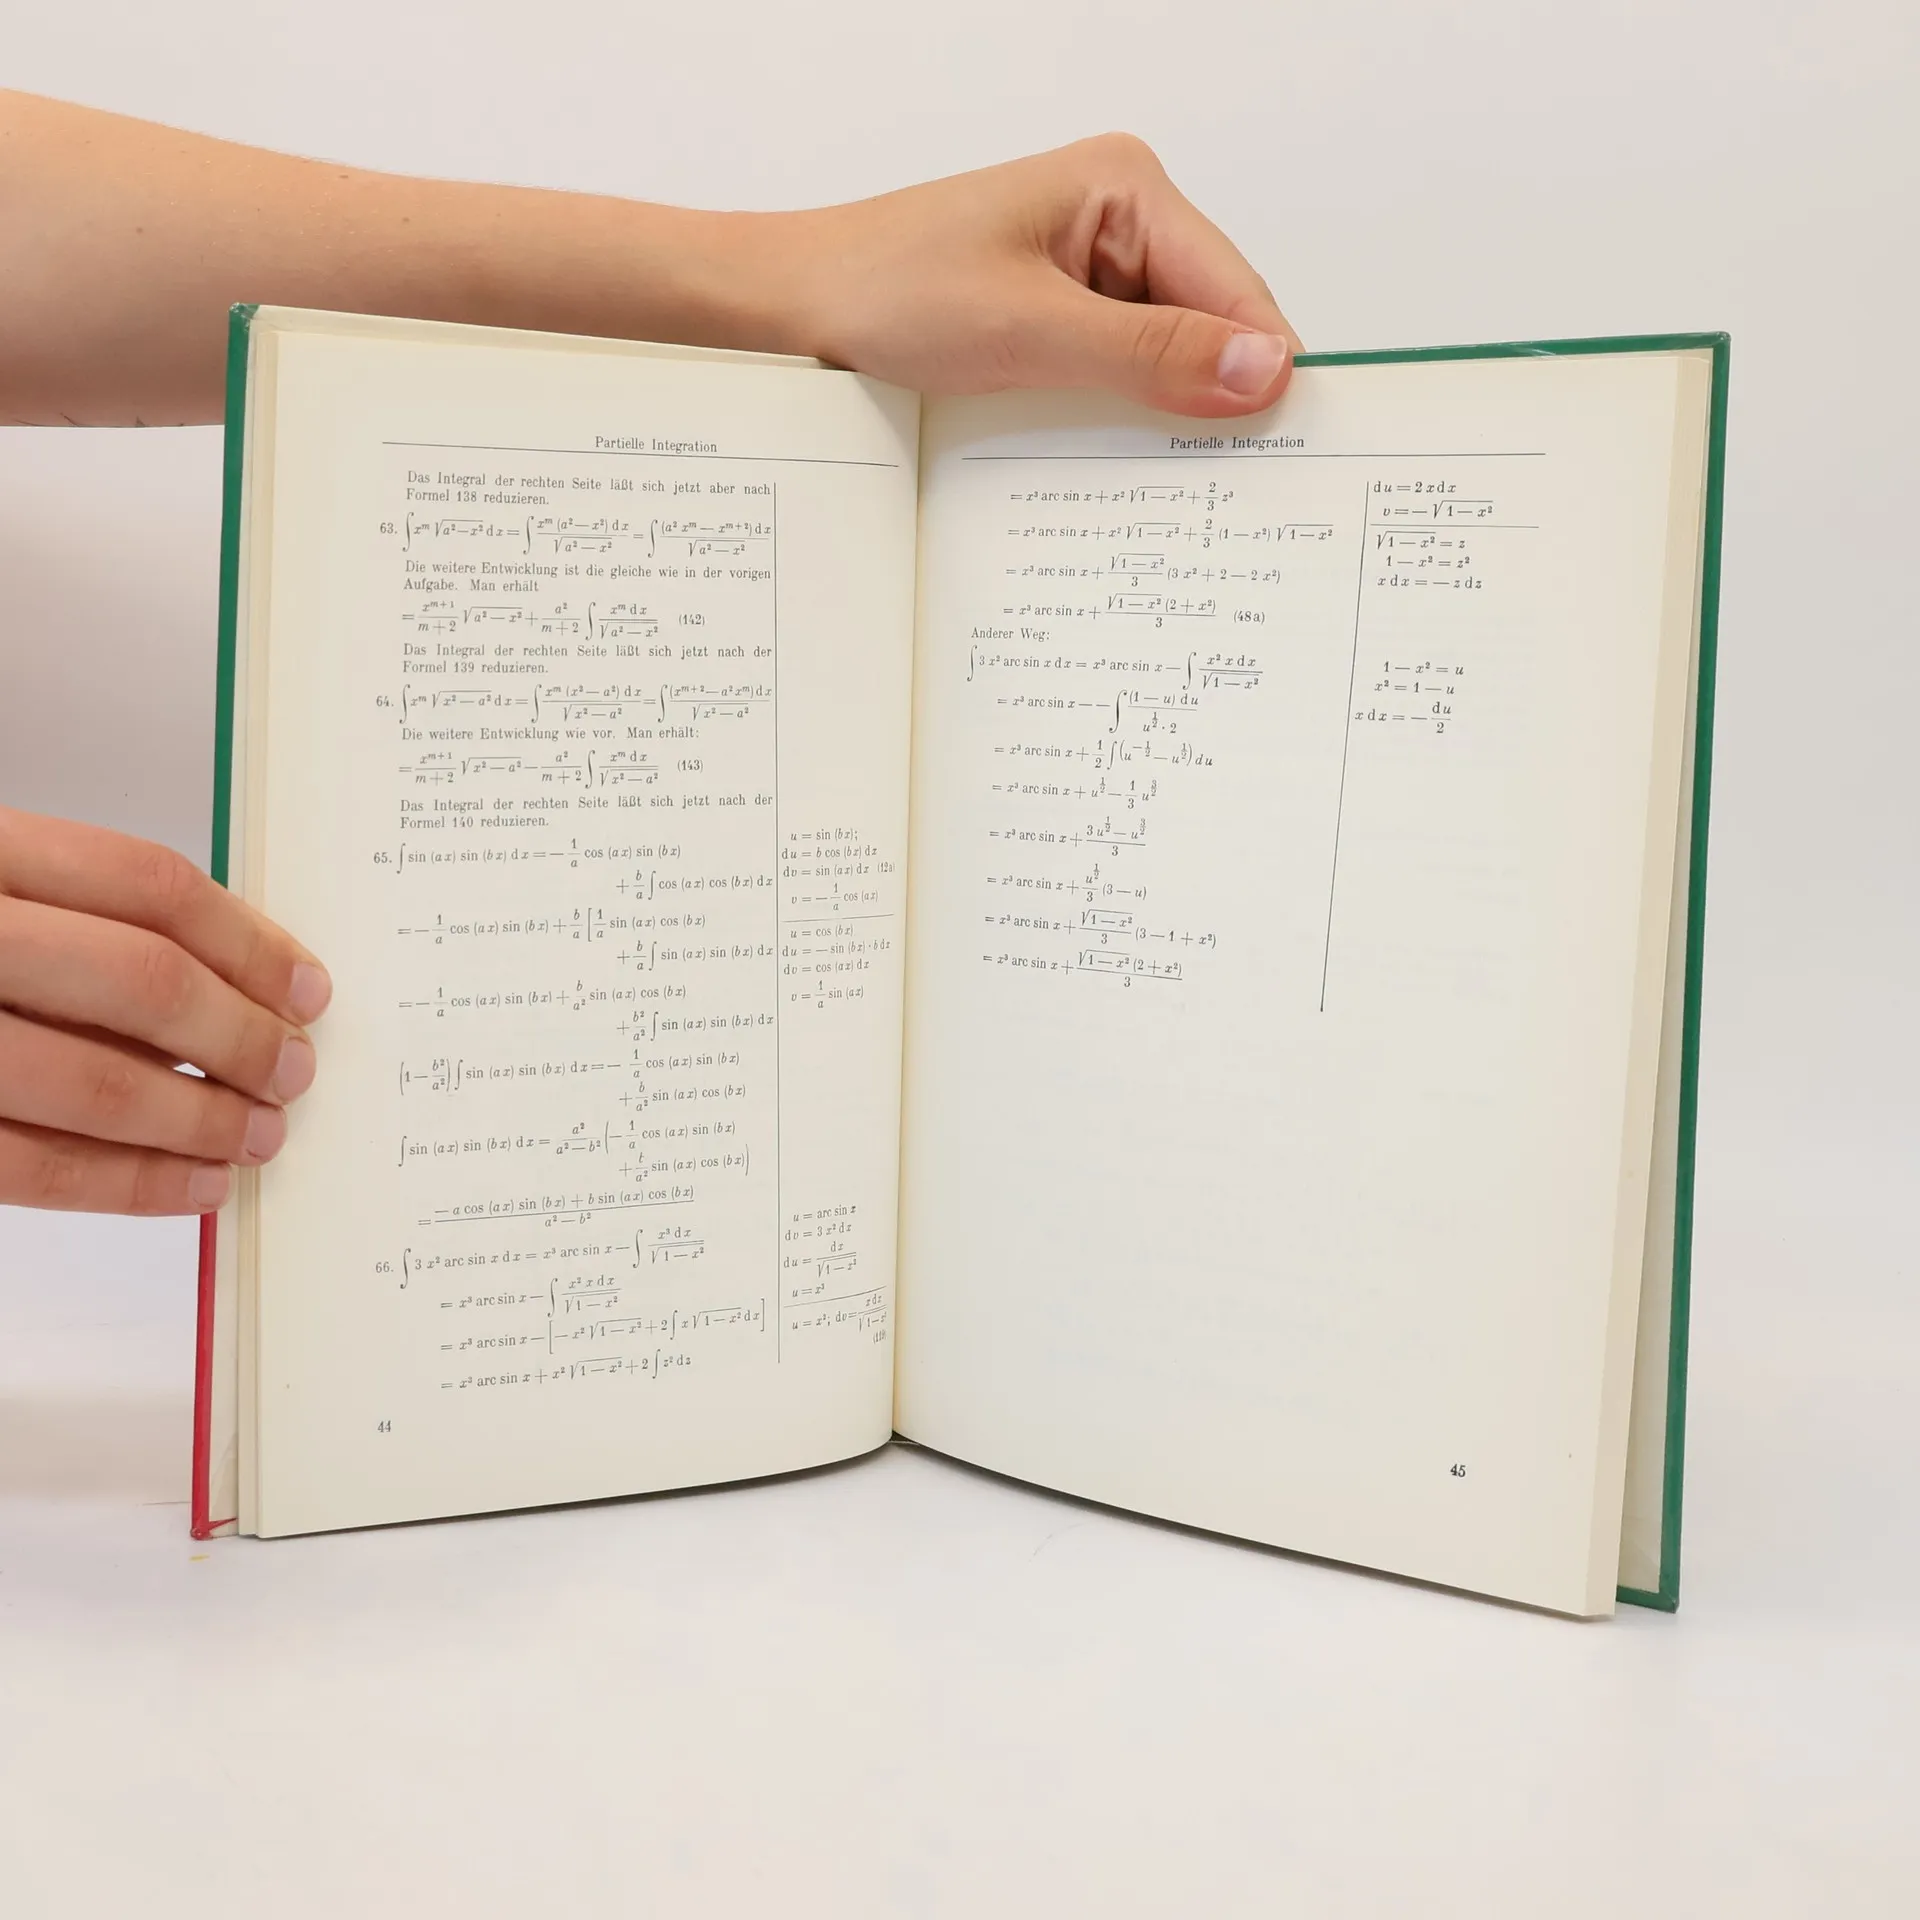 Partielle Integration
Das Integral der rechten Seite läßt sich jetzt aber nach
Formel 138 reduzieren.
63. ∫ xᵐ √(a² − x²) dx = ∫ xᵐ (a² − x²) dx / √(a² − x²) = ∫ (a² xᵐ − xᵐ⁺²) dx / √(a² − x²)
Die weitere Entwicklung ist die gleiche wie in der vorigen
Aufgabe. Man erhält
= xᵐ⁺¹/(m + 2) √(a² − x²) + a²/(m + 2) ∫ xᵐ dx / √(a² − x²) (142)
Das Integral der rechten Seite läßt sich jetzt nach der
Formel 139 reduzieren.
64. ∫ xᵐ √(x² − a²) dx = ∫ xᵐ (x² − a²) dx / √(x² − a²) = ∫ (xᵐ⁺² − a² xᵐ) dx / √(x² − a²)
Die weitere Entwicklung wie vor. Man erhält:
= xᵐ⁺¹/(m + 2) √(x² − a²) − a²/(m + 2) ∫ xᵐ dx / √(x² − a²) (143)
Das Integral der rechten Seite läßt sich jetzt nach der
Formel 140 reduzieren.
65. ∫ sin (ax) sin (bx) dx = − 1/a cos (ax) sin (bx)
+ b/a ∫ cos (ax) cos (bx) dx
= − 1/a cos (ax) sin (bx) + b/a [ 1/a sin (ax) cos (bx)
+ b/a ∫ sin (ax) sin (bx) dx
= − 1/a cos (ax) sin (bx) + b/a² sin (ax) cos (bx)
+ b²/a² ∫ sin (ax) sin (bx) dx
(1 − b²/a²) ∫ sin (ax) sin (bx) dx = − 1/a cos (ax) sin (bx)
+ b/a² sin (ax) cos (bx)
∫ sin (ax) sin (bx) dx = a²/(a² − b²) (− 1/a cos (ax) sin (bx)
+ t/a² sin (ax) cos (bx))
= (− a cos (ax) sin (bx) + b sin (ax) cos (bx)) / (a² − b²)
66. ∫ 3 x² arc sin x dx = x³ arc sin x − ∫ x³ dx / √(1 − x²)
= x³ arc sin x − ∫ x² x dx / √(1 − x²)
= x³ arc sin x − [− x² √(1 − x²) + 2 ∫ x √(1 − x²) dx]
= x³ arc sin x + x² √(1 − x²) + 2 ∫ z² dz
u = sin (bx);
du = b cos (bx) dx
dv = sin (ax) dx (12a)
v = − 1/a cos (ax)
u = cos (bx)
du = − sin (bx) · b dx
dv = cos (ax) dx
v = 1/a sin (ax)
u = arc sin x
dv = 3 x² dx
du = dx / √(1 − x²)
u = x³
u = x²; dv = x dx / √(1 − x²)
44
Partielle Integration
= x³ arc sin x + x² √(1 − x²) + 2/3 z³
= x³ arc sin x + x² √(1 − x²) + 2/3 (1 − x²) √(1 − x²)
= x³ arc sin x + √(1 − x²)/3 (3 x² + 2 − 2 x²)
= x³ arc sin x + √(1 − x²) (2 + x²) / 3 (48a)
Anderer Weg:
∫ 3 x² arc sin x dx = x³ arc sin x − ∫ x² x dx / √(1 − x²)
= x³ arc sin x − − ∫ (1 − u) du / (u^(1/2) · 2)
= x³ arc sin x + 1/2 ∫ (u^(−1/2) − u^(1/2)) du
= x³ arc sin x + u^(1/2) − 1/3 u^(3/2)
= x³ arc sin x + (3 u^(1/2) − u^(3/2)) / 3
= x³ arc sin x + u^(1/2)/3 (3 − u)
= x³ arc sin x + √(1 − x²)/3 (3 − 1 + x²)
= x³ arc sin x + √(1 − x²) (2 + x²) / 3
du = 2 x dx
v = − √(1 − x²)
√(1 − x²) = z
1 − x² = z²
x dx = − z dz
1 − x² = u
x² = 1 − u
x dx = − du/2
45